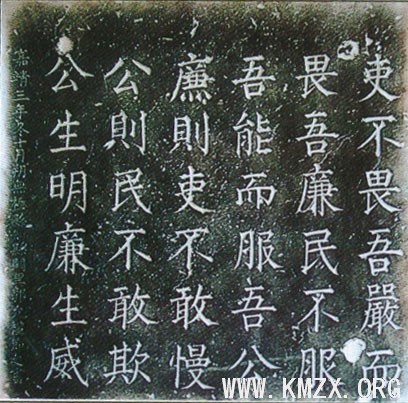 吏不畏吾嚴而
畏吾廉民不服
吾能而服吾公
廉則吏不敢慢
公則民不敢欺
公生明廉生威
嘉靖三年冬十月朔
WWW.KMZX.ORG